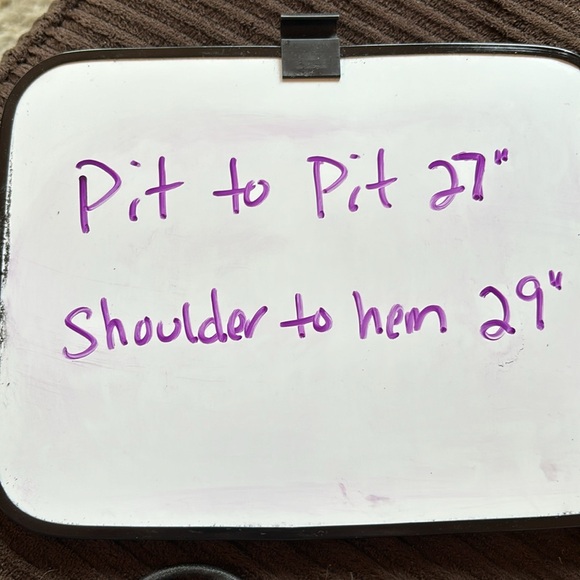 Pit to Pit 27"
Shoulder to hem 29"